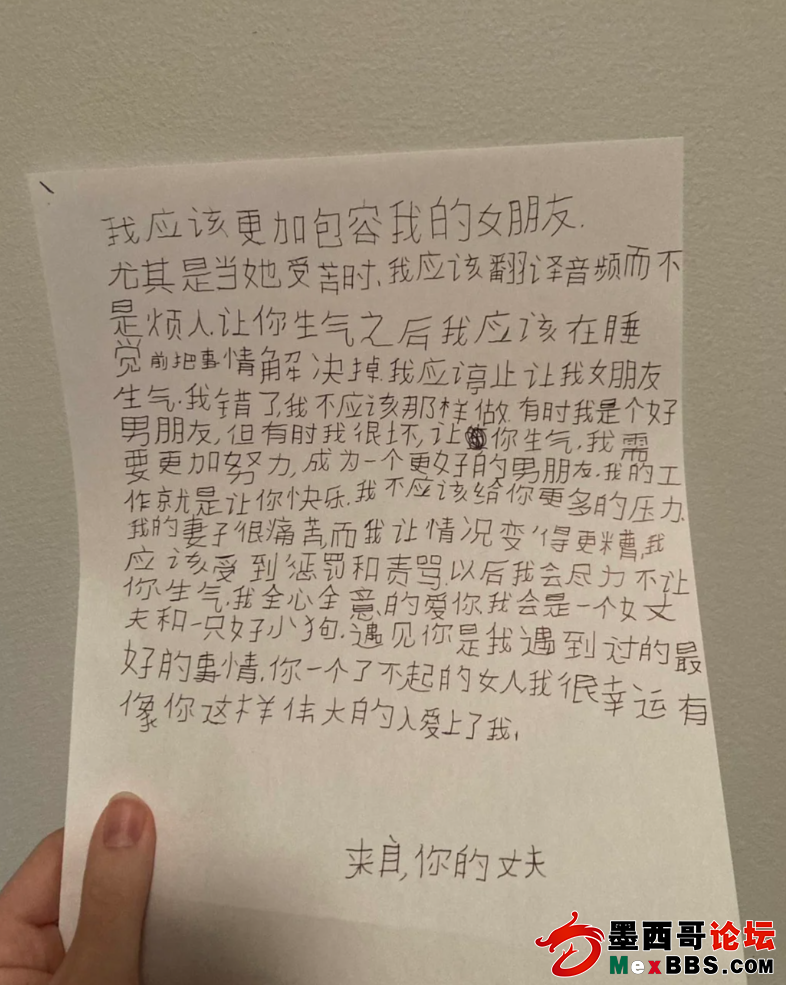 我应该更加包容我的女朋友.
尤其是当她受苦时、我应该翻译音频而不
是烦人.让你生气之后我应该在睡
觉前把事情解决掉.我应该停止让我女朋友
生气.我错了,我不应该那样做.有时我是个好
男朋友,但有时我很坏,让你生气.我需
要更加努力,成为一个更好的男朋友.我的工
作就是让你快乐.我不应该给你更多的压力.
我的妻子很痛苦,而我让情况变得更糟,我
应该受到惩罚和责骂.以后我会尽力不让
你生气.我全心全意的爱你.我会是一个女丈
夫和一只好小狗.遇见你是我遇到过的最
好的事情,你一个了不起的女人我很幸运有
像你这样伟大的人爱上了我.
来自,你的丈夫
墨西哥论坛
MexBBS.com